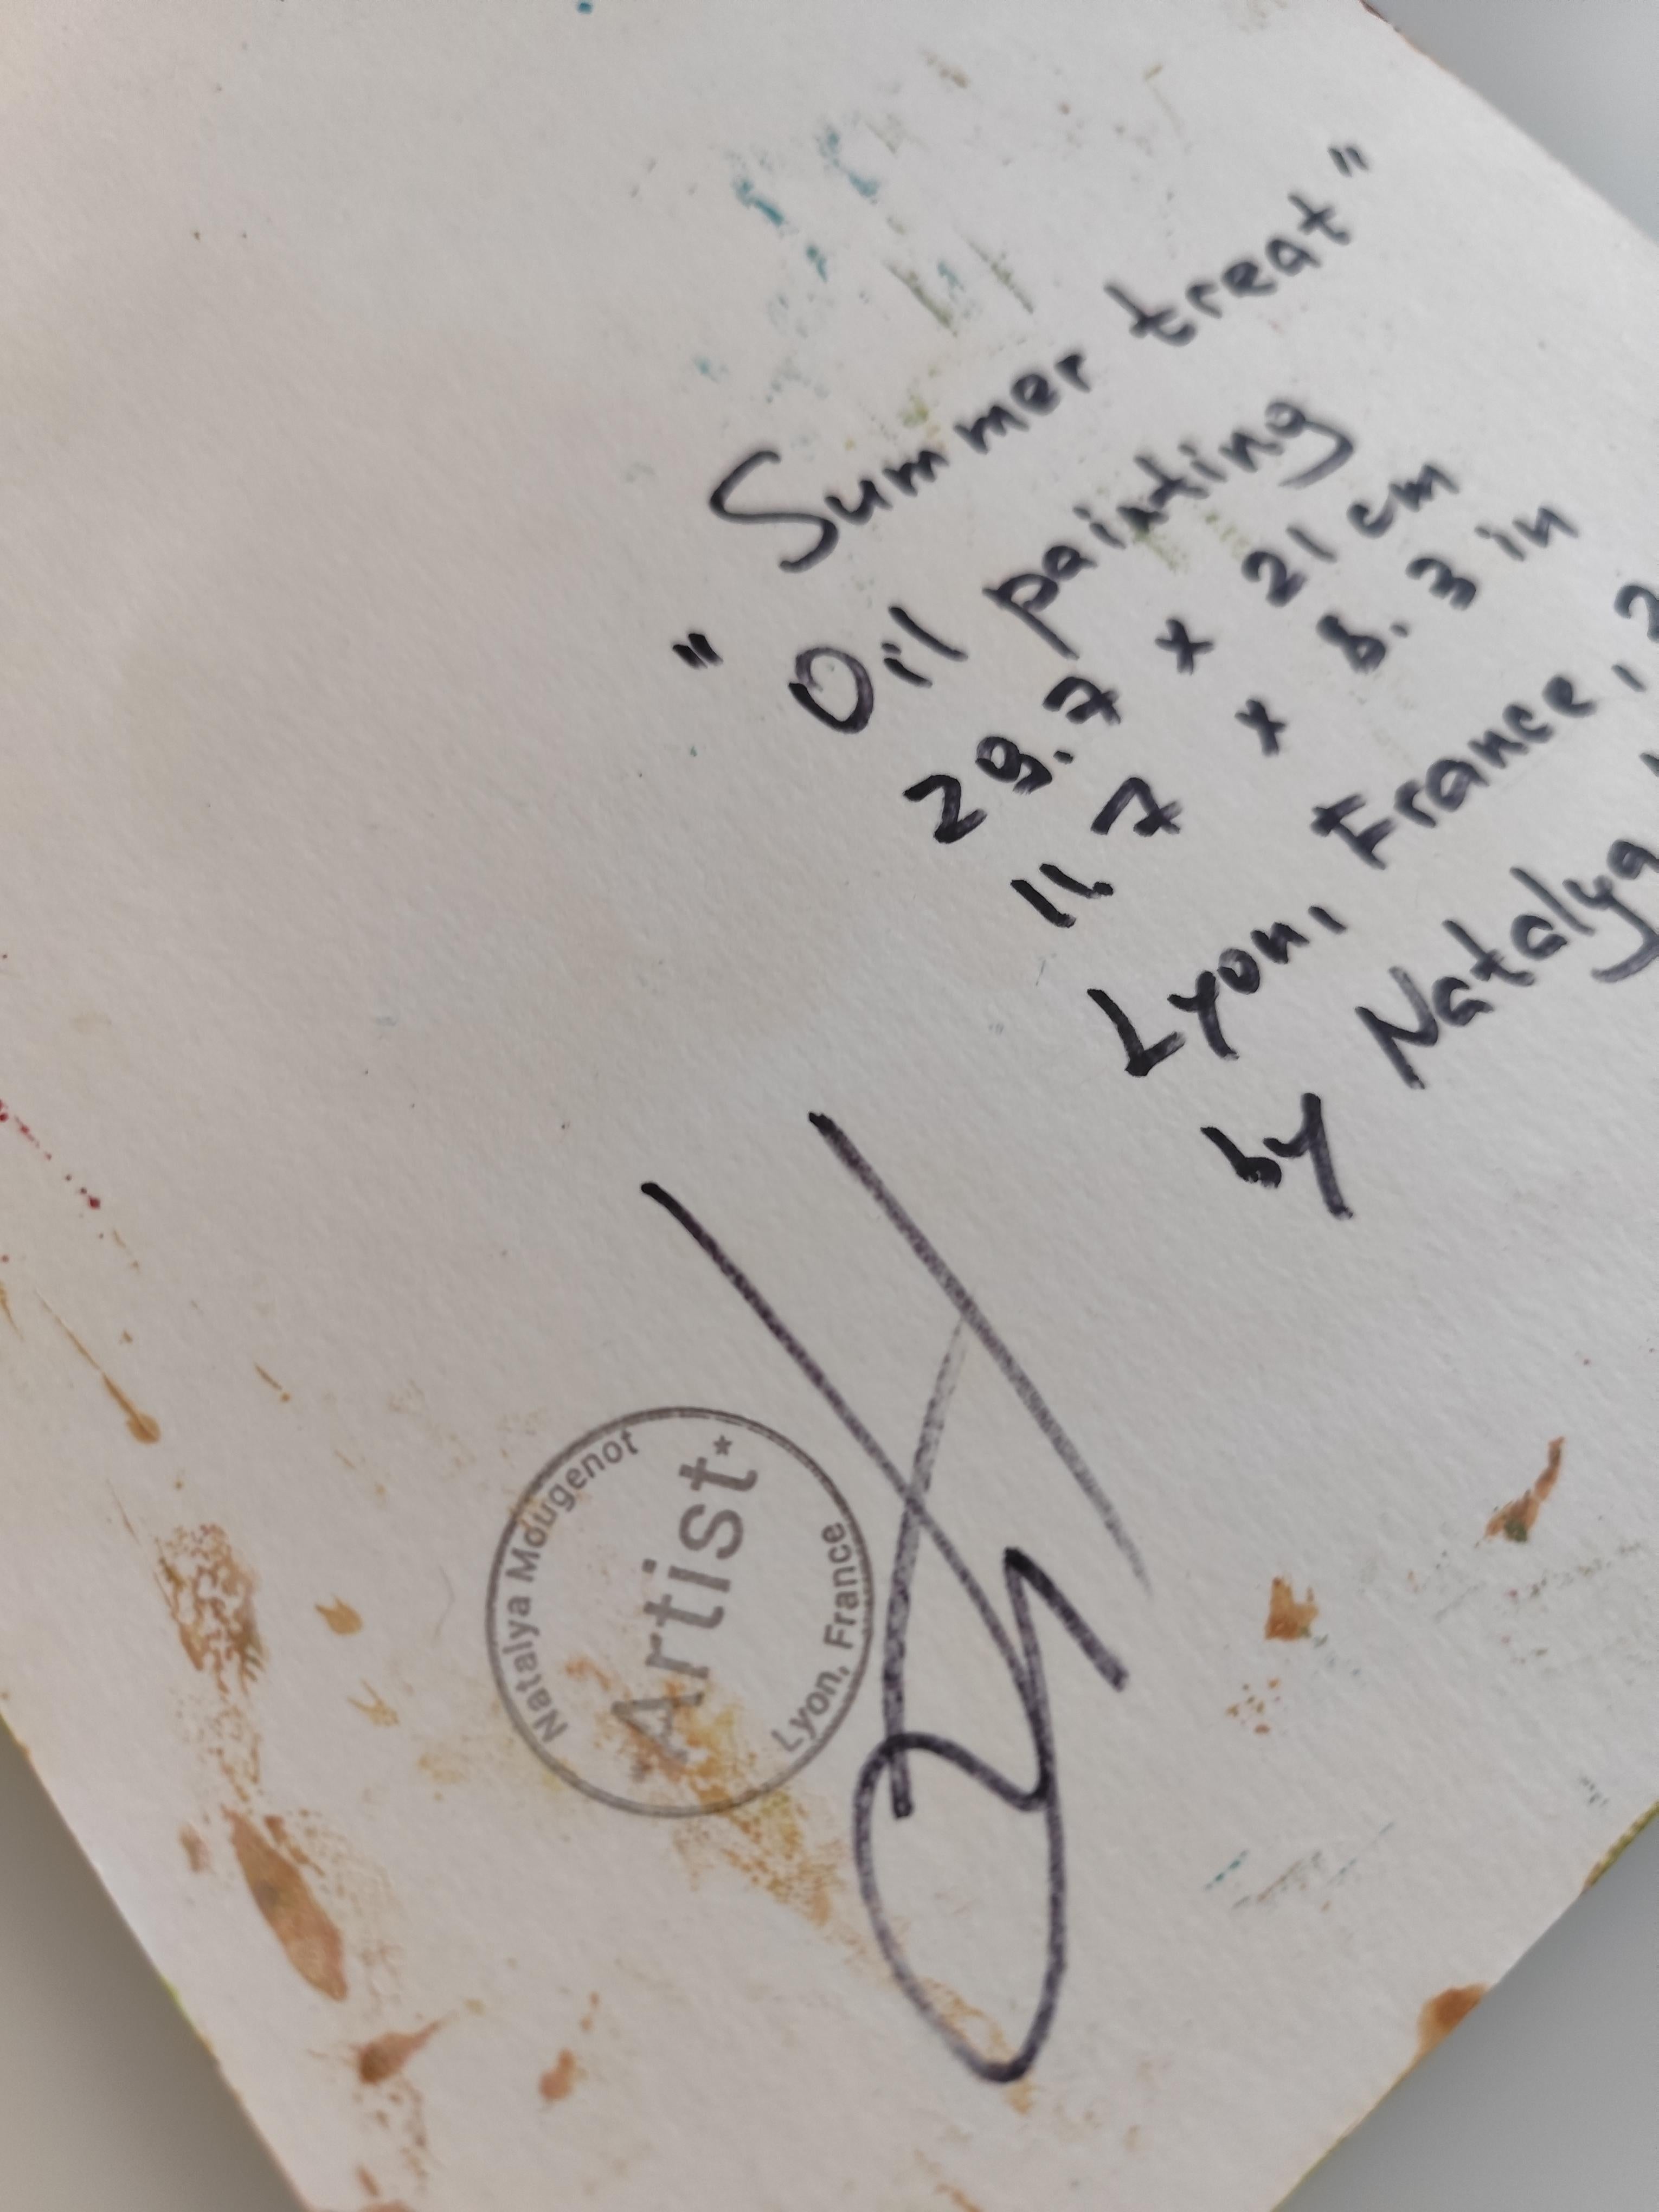 "Summer treat"
Oil painting
29.7 x 21 cm
11.7 x 8.3 in
Lyon, France, 2
by Natalya
Natalya Mougenot
Artist*
Lyon, France